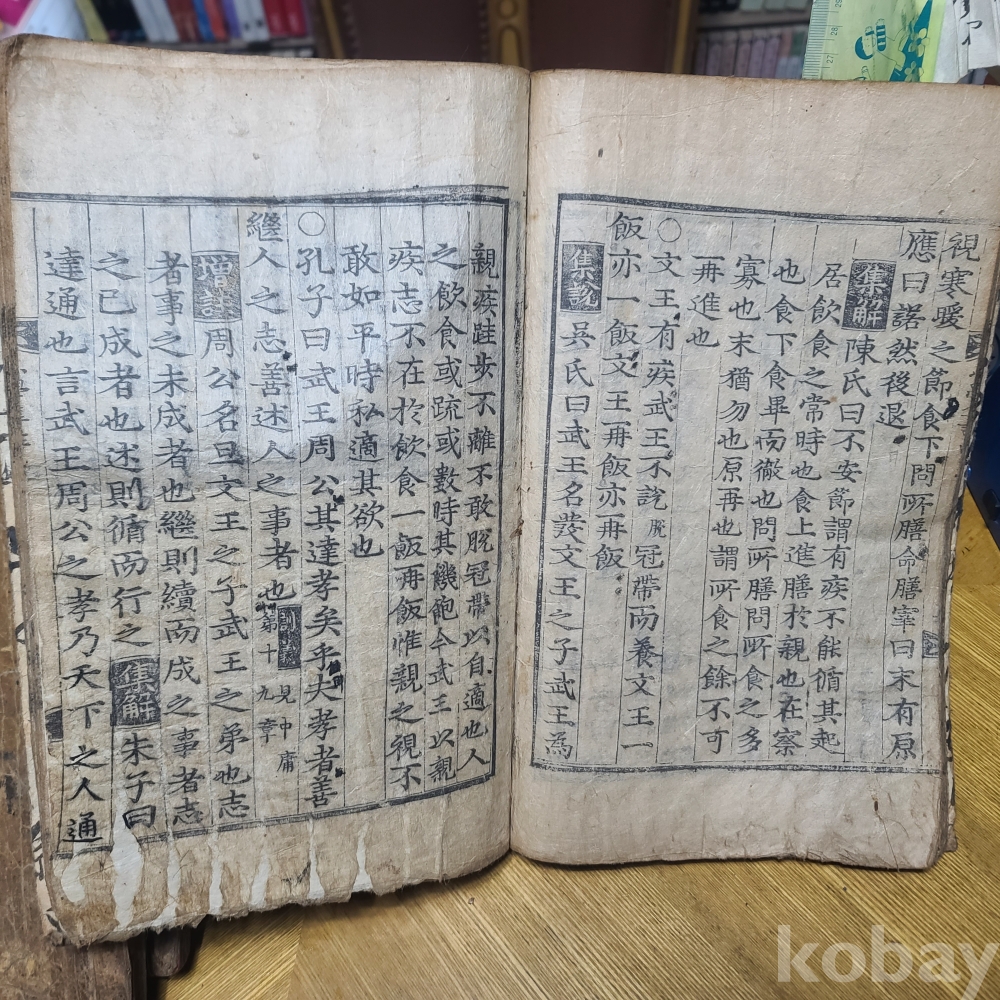 視寒暖之節食下問所膳命膳宰曰末有原
應曰諾然後退
集解 陳氏曰不安節謂有疾不能循其起
居飮食之常時也食上進膳於親也在察
也食下食畢而徹也問所膳問所食之多
寡也末猶勿也原再也謂所食之餘不可
再進也
○文王有疾武王不說脫冠帶而養文王一
飯亦一飯文王再飯亦再飯
集說 吳氏曰武王名發文王之子武王爲
親疾跬步不離不敢脫冠帶以自適也人
之飮食或疏或數時其饑飽今武王以親
疾志不在於飮食一飯再飯惟親之視不
敢如平時私適其欲也
○孔子曰武王周公其達孝矣乎夫孝者善
繼人之志善述人之事者也 見中庸第十九章
增註 周公名旦文王之子武王之弟也志
者事之未成者也繼則續而成之事者志
之已成者也述則循而行之 集解 朱子曰
達通也言武王周公之孝乃天下之人通
kobay